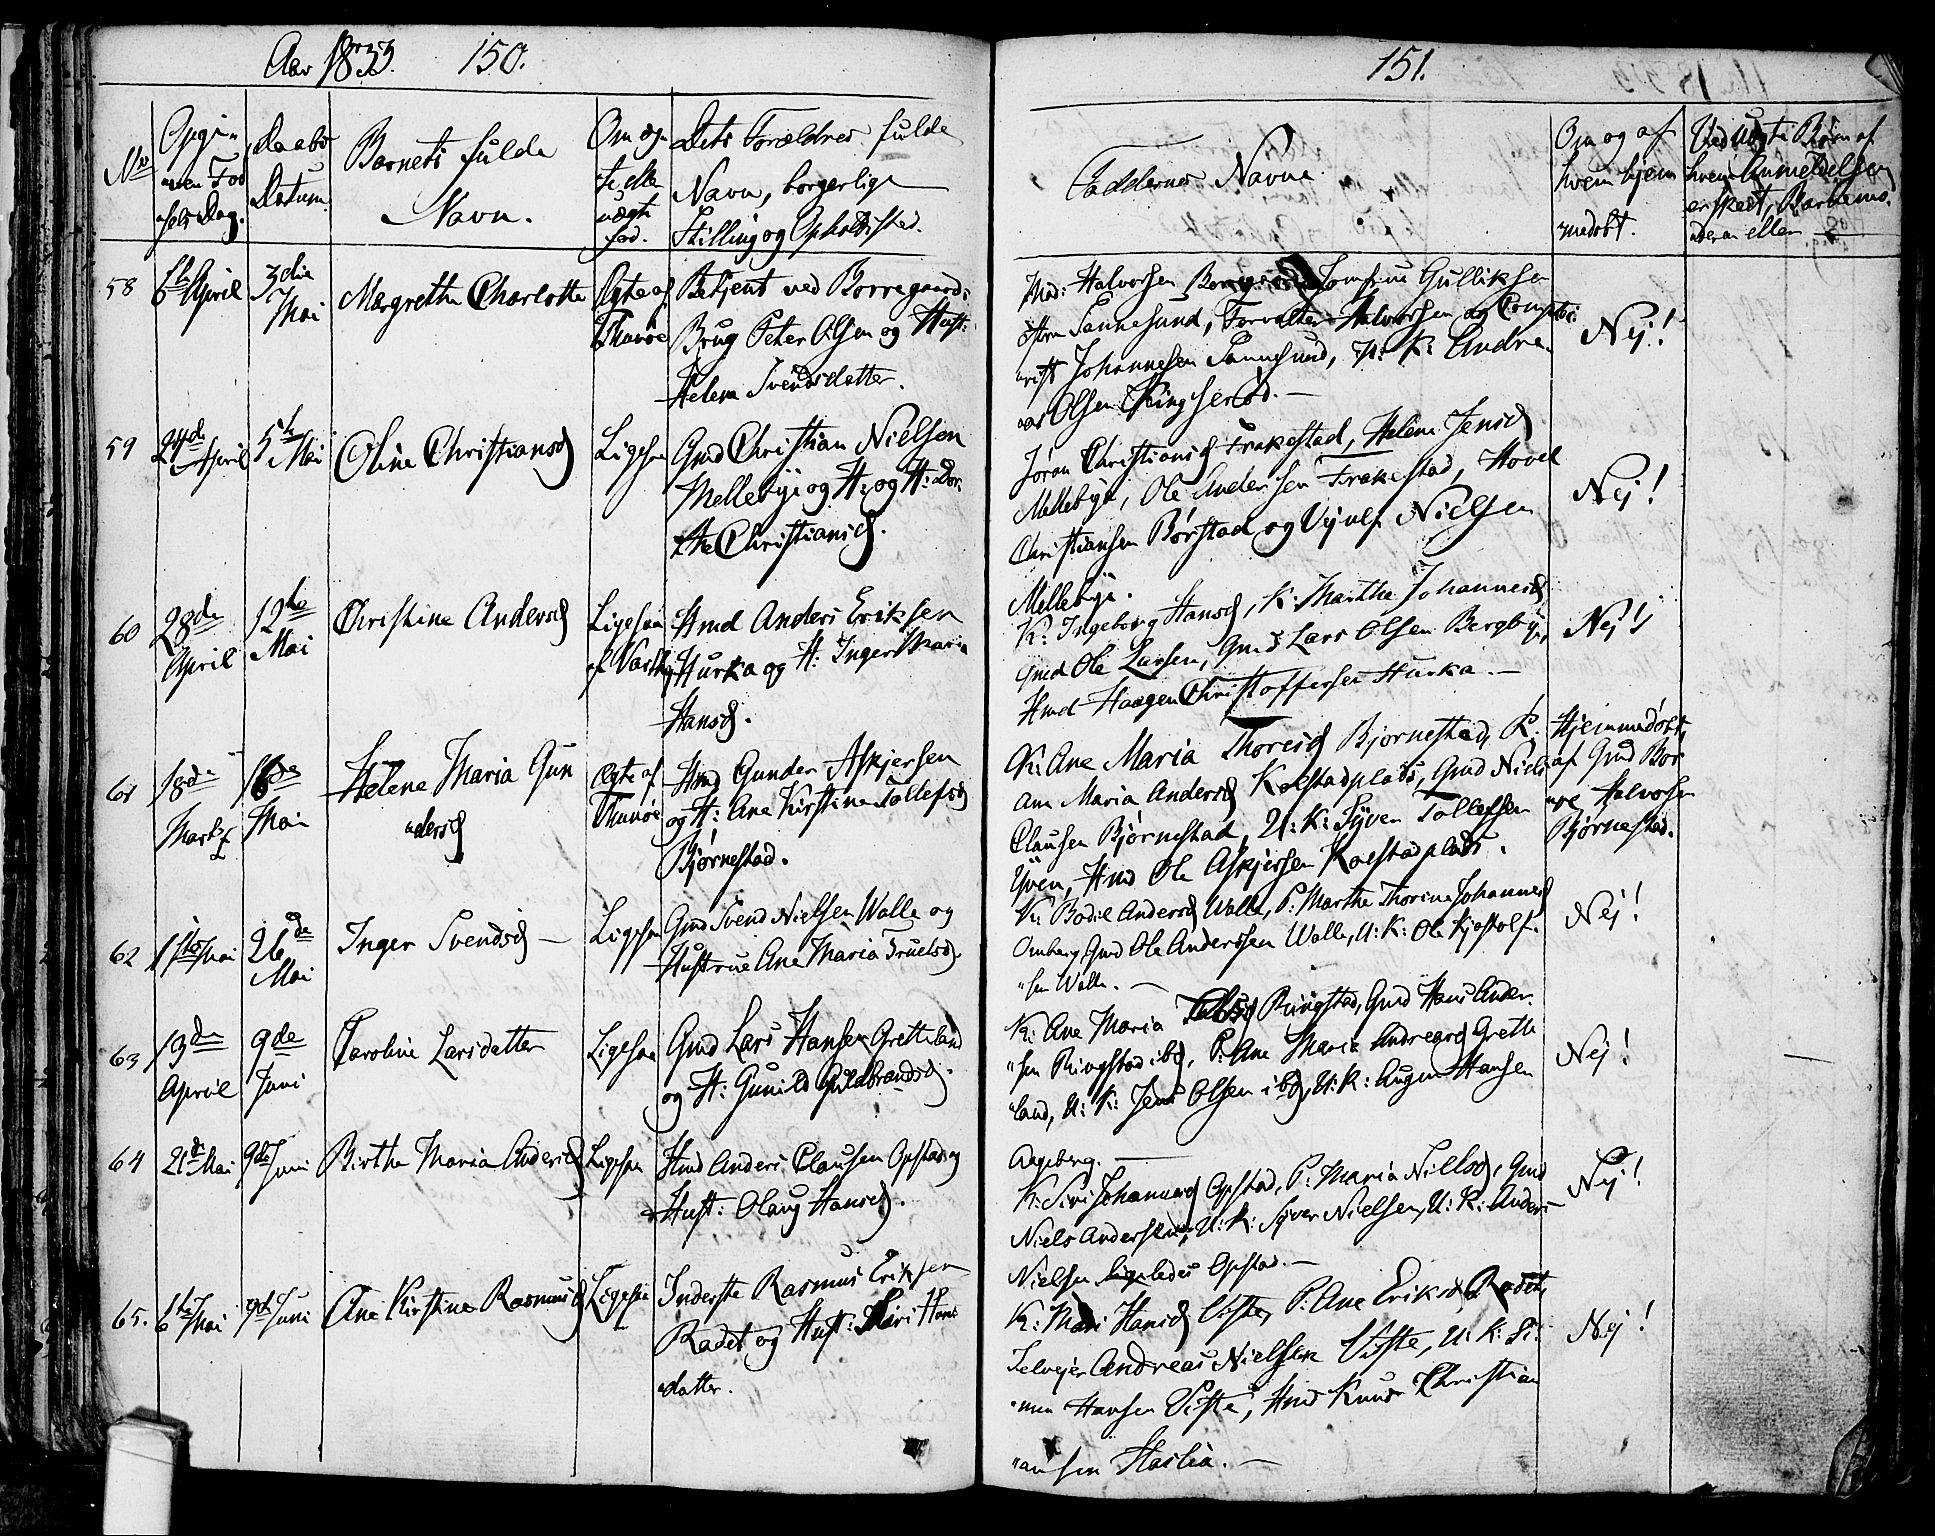 Aar 1833. 150.
No
Opgi-
ven Fød
sels Dag.
Daabs
Datum
Barnets fulde
Navn.
Om æg-
te eller
uægte
fød.
Dets Forældres fulde
Navn, borgerlige
Stilling og Opholdssted.
58
6te April
3die
Mai
Margrethe Charlotte
Ægte af
Thunøe
Betjent ved Borregaards
Brug Peter Olsen og Hust:
Helene Svendsdatter.
59
24de
April
5te
Mai
Oline Christiansd
Ligesaa
Gmd Christian Nielsen
Mellebye og H: og H: Dor:
the Christiansd.
60
28de
April
12te
Mai
Christine Andersd
Ligesaa
af Varteig
Hmd Anders Eriksen
Hurka og H: Inger Maria
Hansd.
61
18de
Marts
16de
Mai
Helene Maria Gun
"dersd
Ægte af
Thunøe
Hmd Gunder Askjersen
og H: Ane Kirstine Tollefsd
Bjørnestad.
62
1ste Mai
26de
Mai
Inger Svendsd —
Ligesaa
Gmd Svend Nielsen Walle og
Hustrue Ane Maria Truelsd.
63
13de
April
9de
Juni
Caroline Larsdatter
Ligesaa
Gmd Lars Hansen Gretteland
og H: Gunild Guldbrandsd.
64
21de Mai
9de Juni
Birthe Maria Andersd
Ligesaa
Hmd Anders Clausen Opstad og
Hust: Olaug Hansd.
65.
6te Mai
9de Juni
Ane Kirstine Rasmusd
Ligesaa
Inderste Rasmus Eriksen
Radet og Hust: Mari Hans
"datter.
151.
Faddernes Navne
Om og af
hvem hjem
medøbt.
Ved uægte Børn af
hvem Anmeldelsen
er skeet, Barnemo-
deren eller —
Mad: Halvorsen Jomfrue Gulliksen
Sannesund, Forvalter Halvorsen og
Johannesen Sannesund, U: K: Andre-
as Olsen Kingserød. —
Nej!
Jøran Christiansd Frakestad, Helene Jensd
Mellebye, Ole Andersen Frakestad, Hovel
Christiansen Børstad og Nielsen
Mellebye.
Nej!
K: Ingeborg Hansd, K: Marthe Johannesd
Gmd Ole Larsen, Gmd Lars Olsen Bergbye,
Hmd Haagen Christoffersen Hurka. —
Nej!
K: Ane Maria Thoresd Bjørnestad, P:
Ane Maria Andersd Kolstadplads, Gmd Niels
Clausen Bjørnestad, U: K: Syver Tollefsen
Yven, Hmd Ole Askjersen Kolstadplads.
Hjemmedøbt,
af Gmd Bor
"re Halvorsen
Bjørnestad.
K: Bodil Andersd Walle, P: Marthe Thorine Johannesd
Omberg, Gmd Ole Anderssen Walle, U: K: Ole Kjøstolf-
"sen Walle. —
Nej!
K: Ane Maria Ringstad, Gmd Hans Ander-
"sen Ringstad ibd, P: Ane Maria Andreasd Grette
land, U: K: Jens Olsen ibd, U: K: August Hansen
Aageberg. —
Nej!
K: Siri Johannesd Opstad, P: Maria Nielsd, Gmd
Niels Andersen, U: K: Syver Nielsen, U: K: Anders
Nielsen Opstad. —
Nej!
K: Mari Hansd Visste, P: Ane Eriksd Radet,
Selveier Andreas Nielsen Visste, U: K: Si-
"men Hansen Visste, Hmd Knud Christian
"ansen Haslia. —
Nej!